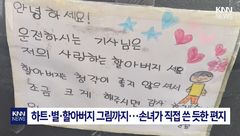 안녕하세요!
운전하시는 기사님은
저의 사랑하는 할아버지세요
할아버지는 청각이 좋지 않으셔서
조금 크게 말해주시면 감사
KNN NEWS
하트·별·할아버지 그림까지…손녀가 직접 쓴 듯한 편지